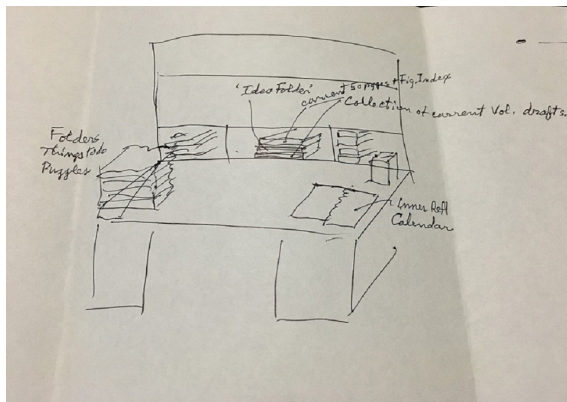 'Idea Folder'
current 50 pages + Fig. Index
Collection of current Vol. drafts.
Folders
Things to do
Puzzles
Inner Refl
Calendar